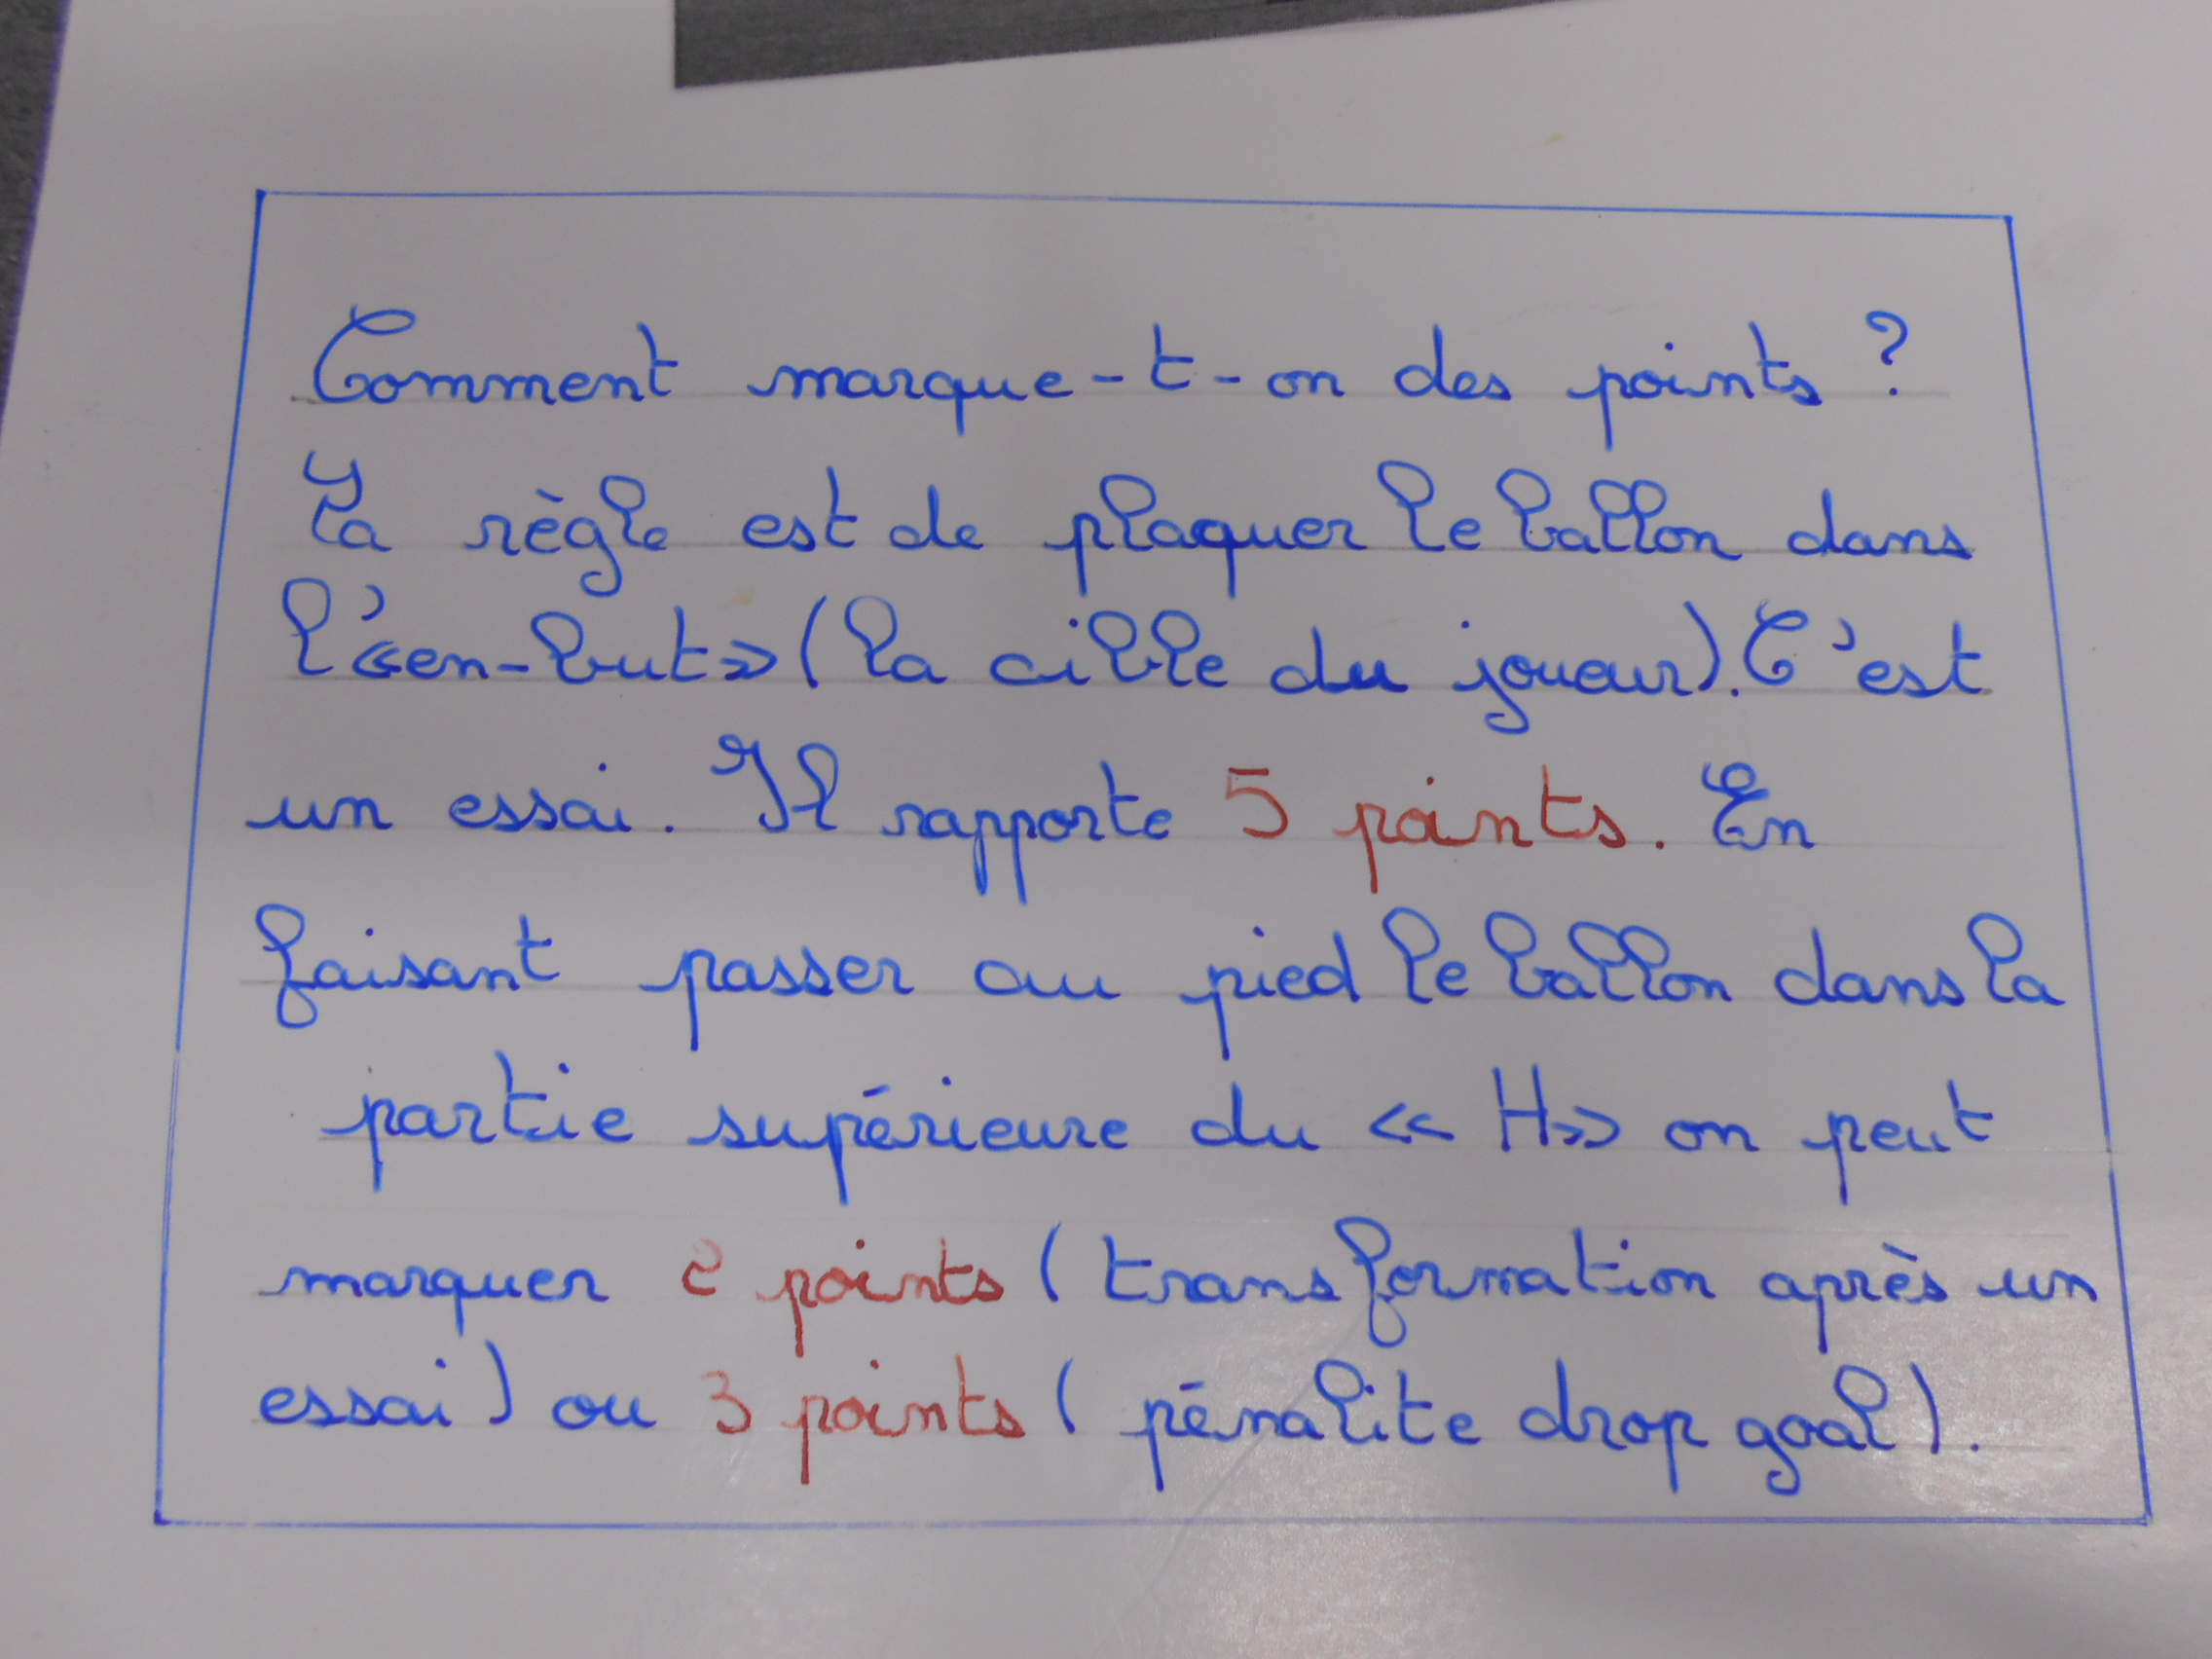 Comment marque-t-on des points ?
La règle est de plaquer le ballon dans
l'«en-but» (la cible du joueur). C'est
un essai. Il rapporte 5 points. En
faisant passer au pied le ballon dans la
partie supérieure du « H» on peut
marquer 2 points (transformation après un
essai) ou 3 points ( pénalite drop goal).